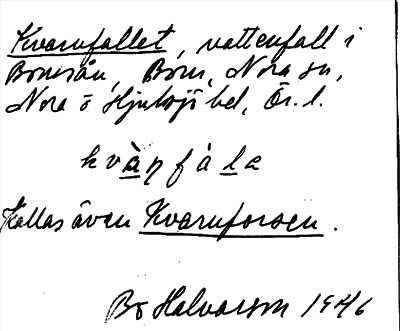 Kvarnfallet, vattenfall i
Bornsån, Born, Nora sn,
Nora o Hjulsjö bel, Ör. l.
kvàṇfàla
Kallas även Kvarnforsen.
Bo Halvarson 1946